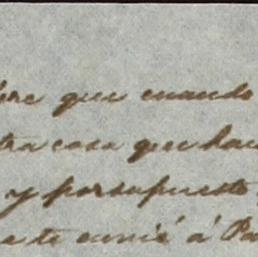 que cuando
tra casa que hac
y porsupuesto
a te envié á Pa